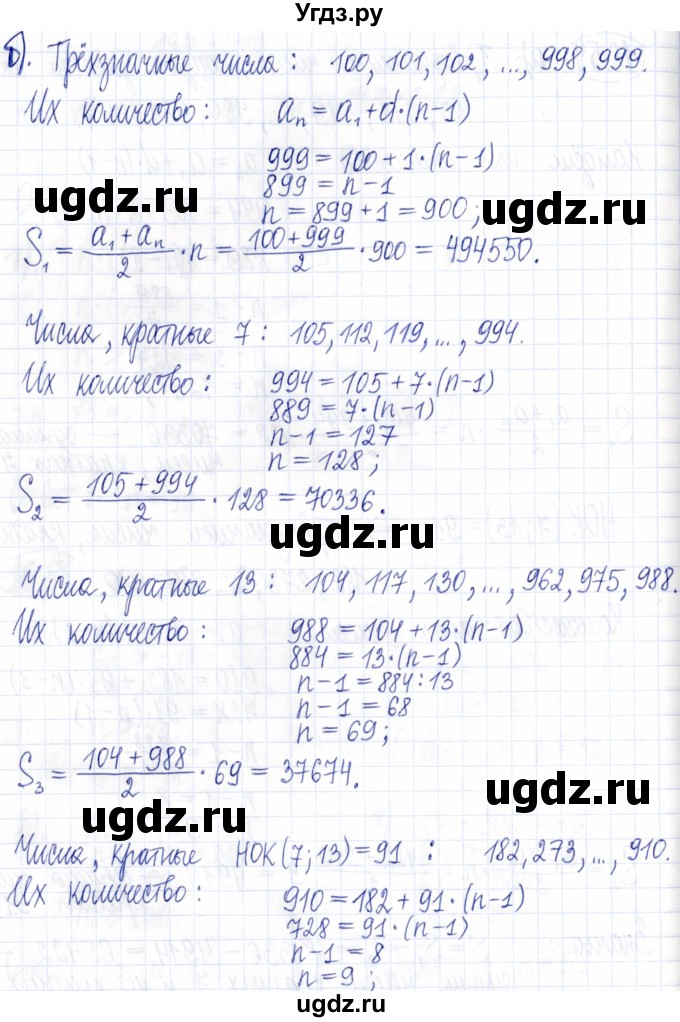 Угдз.ру
б). Трёхзначные числа: 100, 101, 102, ..., 998, 999.
Их количество: aₙ = a₁ + d·(n-1)
999 = 100 + 1·(n-1)
899 = n-1
n = 899 + 1 = 900;
ugdz.ru ugdz.ru
S₁ = (a₁ + aₙ)/2 · n = (100 + 999)/2 · 900 = 494550.
Числа, кратные 7: 105, 112, 119, ..., 994.
Их количество: 994 = 105 + 7·(n-1)
889 = 7·(n-1)
n-1 = 127
n = 128;
ugdz.ru
S₂ = (105 + 994)/2 · 128 = 70336.
ugdz.ru
Числа, кратные 13: 104, 117, 130, ..., 962, 975, 988.
Их количество: 988 = 104 + 13·(n-1)
884 = 13·(n-1)
n-1 = 884:13
n-1 = 68
n = 69;
S₃ = (104 + 988)/2 · 69 = 37674.
ugdz.ru
ugdz.ru
Числа, кратные НОК(7;13) = 91: 182, 273, ..., 910.
Их количество: 910 = 182 + 91·(n-1)
728 = 91·(n-1)
n-1 = 8
n = 9;
ugdz.ru
ugdz.ru